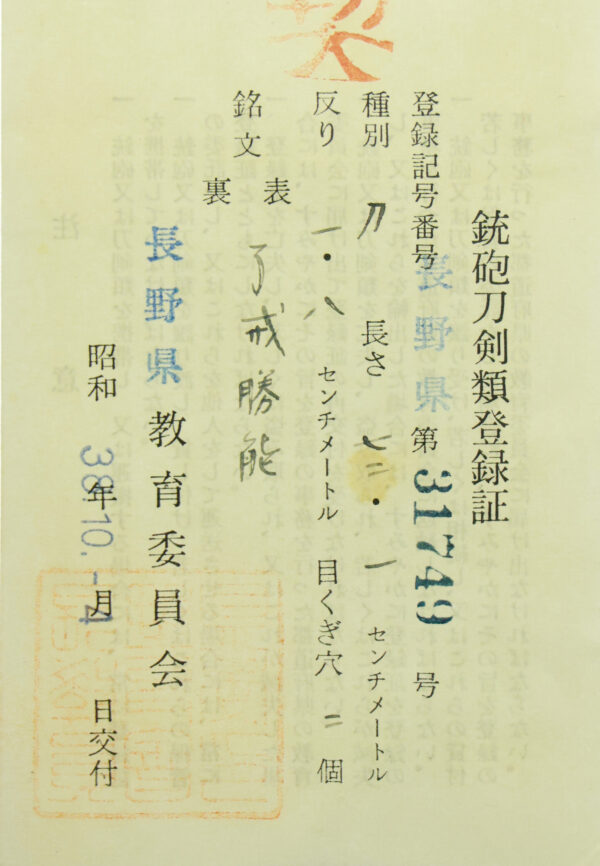 銃砲刀剣類登録証
登録記号番号 長野県 第 31749 号
種別 刀 長さ 七二・一 センチメートル
反り 一・八 センチメートル 目くぎ穴 二 個
銘文 表 了戒勝能
裏
長野県教育委員会
昭和 38.10.-4 年 月 日交付